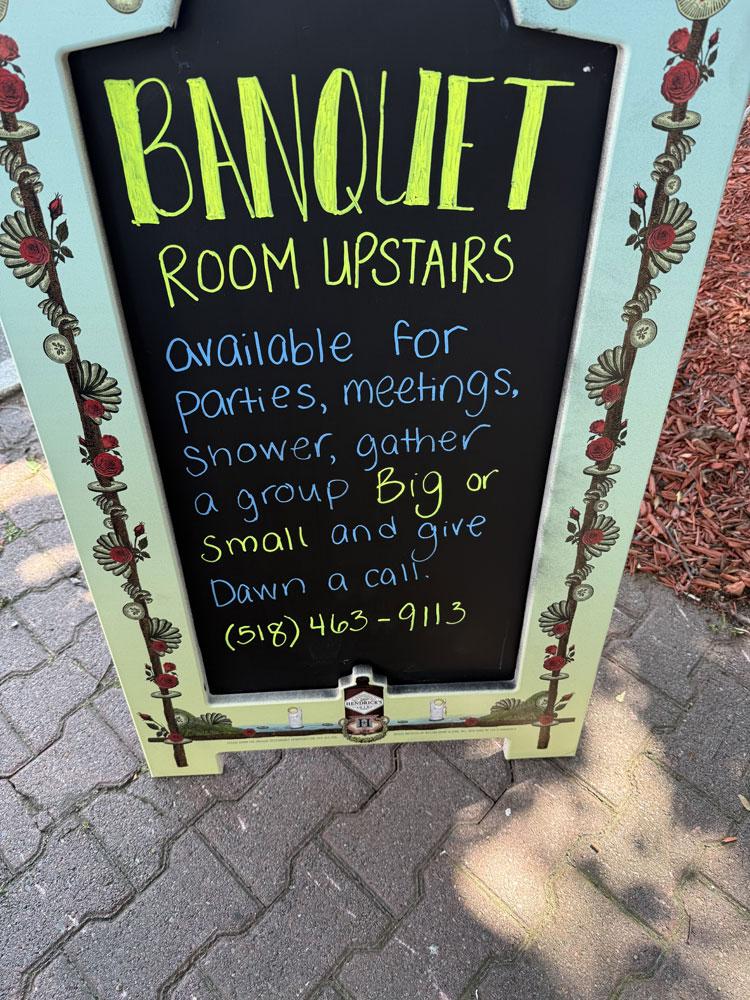 BANQUET
ROOM UPSTAIRS
available for
parties, meetings,
shower, gather
a group Big or
small and give
Dawn a call.
(518) 463-9113
HENDRICK'S
H